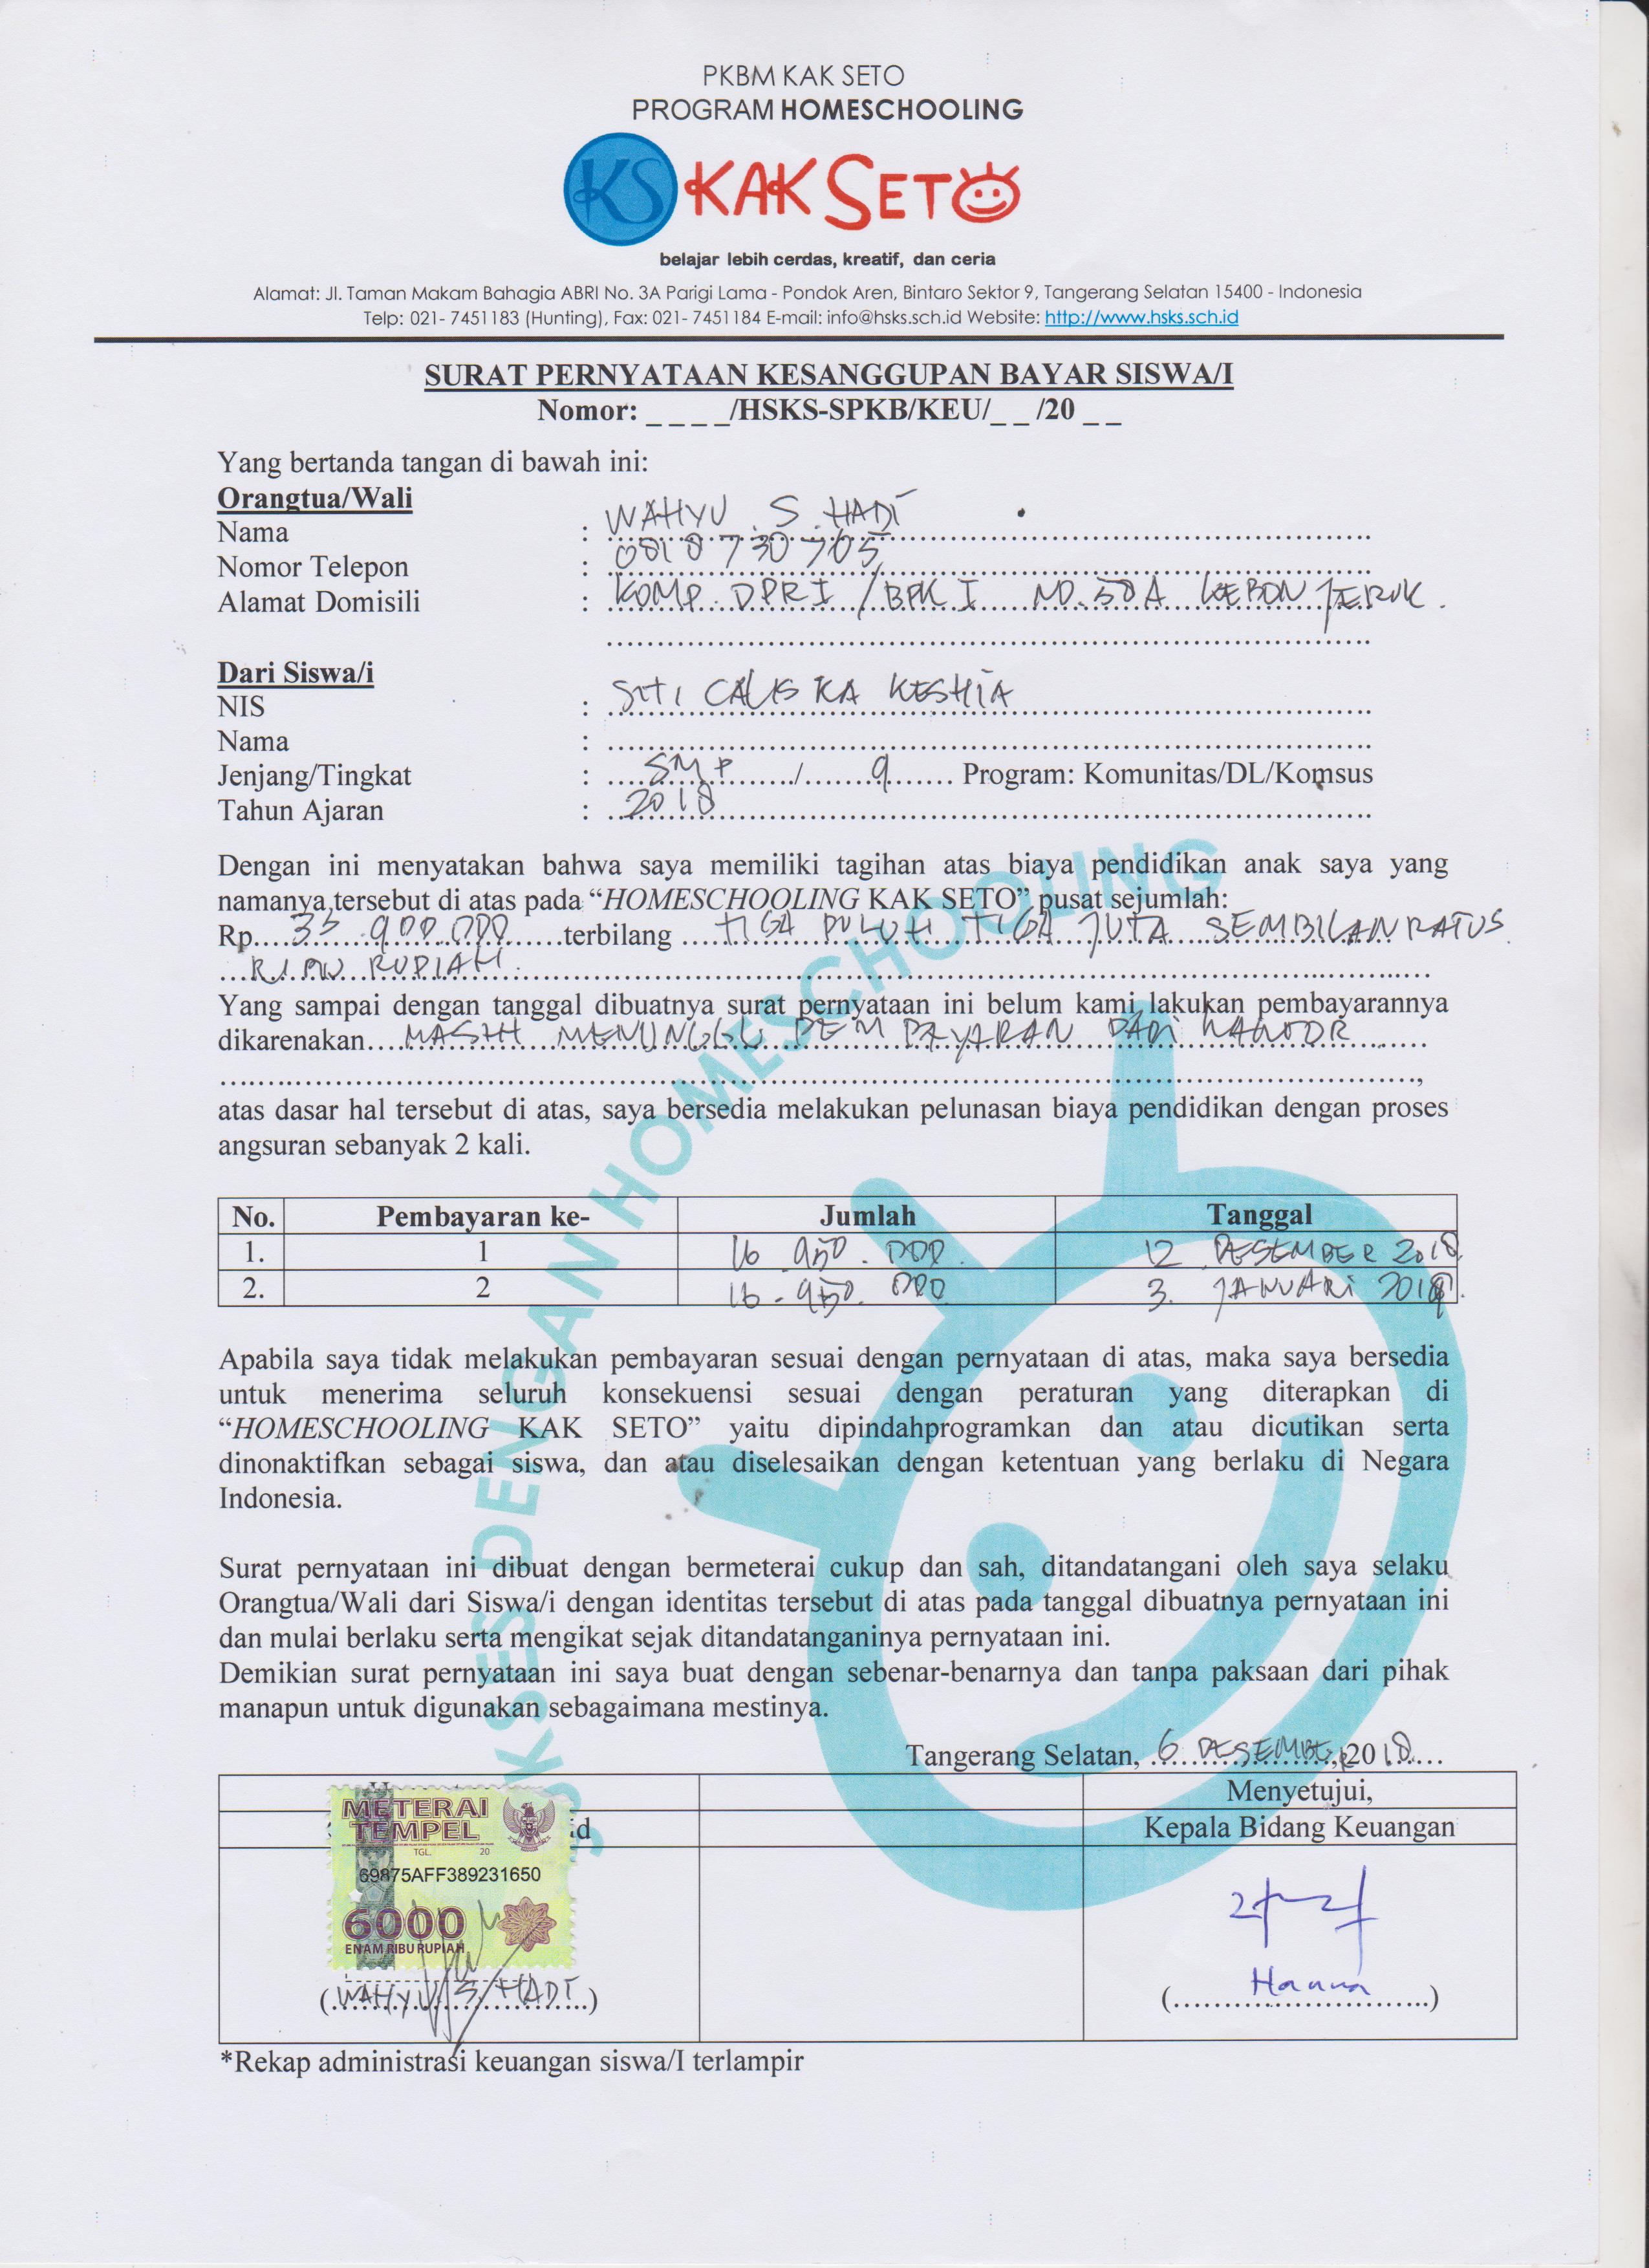 PKBM KAK SETO
PROGRAM HOMESCHOOLING
KS KAK SETO
belajar lebih cerdas, kreatif, dan ceria
Alamat: Jl. Taman Makam Bahagia ABRI No. 3A Parigi Lama - Pondok Aren, Bintaro Sektor 9, Tangerang Selatan 15400 - Indonesia
Telp: 021- 7451183 (Hunting), Fax: 021- 7451184 E-mail: info@hsks.sch.id Website: http://www.hsks.sch.id
SURAT PERNYATAAN KESANGGUPAN BAYAR SISWA/I
Nomor: _ _ _ _/HSKS-SPKB/KEU/_ _ /20 _ _
Yang bertanda tangan di bawah ini:
Orangtua/Wali
Nama : WAHYU S. HADI
Nomor Telepon : 0818 730 705
Alamat Domisili : KOMP. DPRI / BPK I NO. 50A KEBON JERUK.
Dari Siswa/i
NIS : SITI CALISKA KESHIA
Nama :
Jenjang/Tingkat : SMP / 9 Program: Komunitas/DL/Komsus
Tahun Ajaran : 2018
Dengan ini menyatakan bahwa saya memiliki tagihan atas biaya pendidikan anak saya yang
namanya tersebut di atas pada “HOMESCHOOLING KAK SETO” pusat sejumlah:
Rp. 33.900.000 terbilang TIGA PULUH TIGA JUTA SEMBILAN RATUS
RIBU RUPIAH.
Yang sampai dengan tanggal dibuatnya surat pernyataan ini belum kami lakukan pembayarannya
dikarenakan MASIH MENUNGGU PEMBAYARAN DARI KANTOR
atas dasar hal tersebut di atas, saya bersedia melakukan pelunasan biaya pendidikan dengan proses
angsuran sebanyak 2 kali.
No. Pembayaran ke- Jumlah Tanggal
1. 1 16.950.000 12 DESEMBER 2018.
2. 2 16.950.000 3. JANUARI 2019.
Apabila saya tidak melakukan pembayaran sesuai dengan pernyataan di atas, maka saya bersedia
untuk menerima seluruh konsekuensi sesuai dengan peraturan yang diterapkan di
“HOMESCHOOLING KAK SETO” yaitu dipindahprogramkan dan atau dicutikan serta
dinonaktifkan sebagai siswa, dan atau diselesaikan dengan ketentuan yang berlaku di Negara
Indonesia.
Surat pernyataan ini dibuat dengan bermeterai cukup dan sah, ditandatangani oleh saya selaku
Orangtua/Wali dari Siswa/i dengan identitas tersebut di atas pada tanggal dibuatnya pernyataan ini
dan mulai berlaku serta mengikat sejak ditandatanganinya pernyataan ini.
Demikian surat pernyataan ini saya buat dengan sebenar-benarnya dan tanpa paksaan dari pihak
manapun untuk digunakan sebagaimana mestinya.
Tangerang Selatan, 6 DESEMBER, 2018
Menyetujui,
Kepala Bidang Keuangan
METERAI
TEMPEL
TGL. 20
69875AFF389231650
6000
ENAM RIBU RUPIAH
(WAHYU S. HADI)
(Hanna)
*Rekap administrasi keuangan siswa/I terlampir
SUKSES DENGAN HOMESCHOOLING